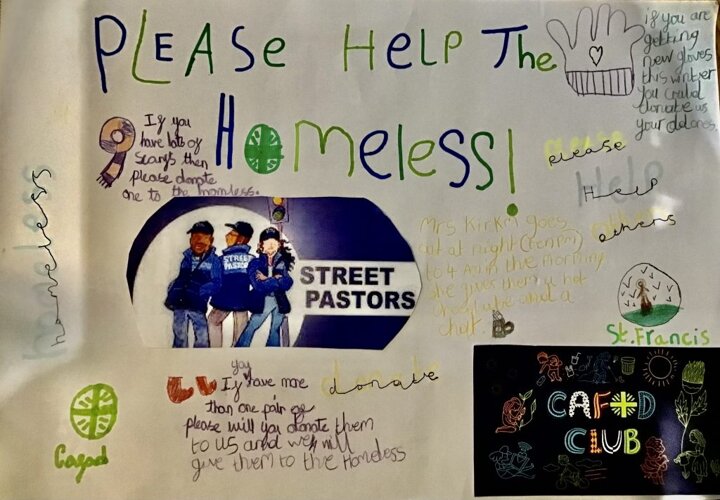 PLEASE HELP THE
HOMELESS!
if you are
getting
new gloves
this winter
you could
donate us
your old ones
If you
have lots of
scarfs then
please donate
one to the homless.
please
Help
others
homeless
STREET
PASTORS
STREET
PASTORS
Mrs Kirkm goes
out at night
to 4 Am in the morning
she gives them a hot
and a
chat
St. Francis
Cafod
you
If have more
than one pair of
please will you donate them
to us and we will
give them to the Homeless
donate
CAFOD
CLUB